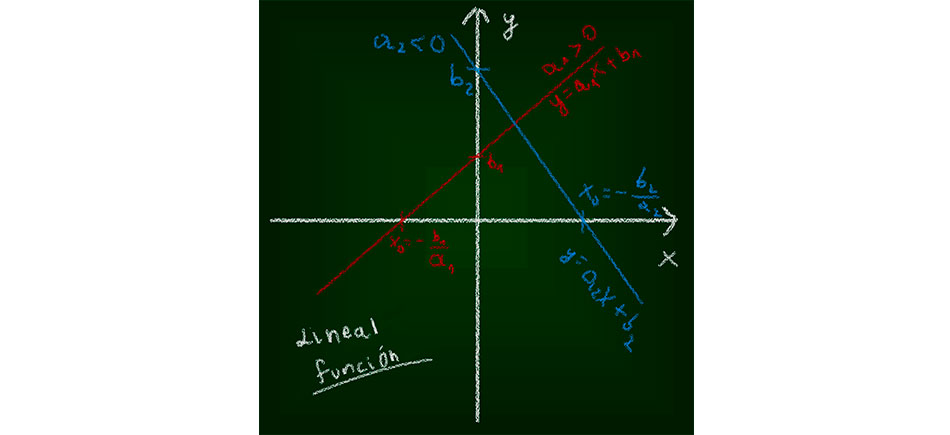 y
a₂<0
b₂
a₁>0
y=a₁x+b₁
b₁
x₀=-b₂/a₂
x
x₀=-b₁/a₁
y=a₂x+b₂
Lineal
función